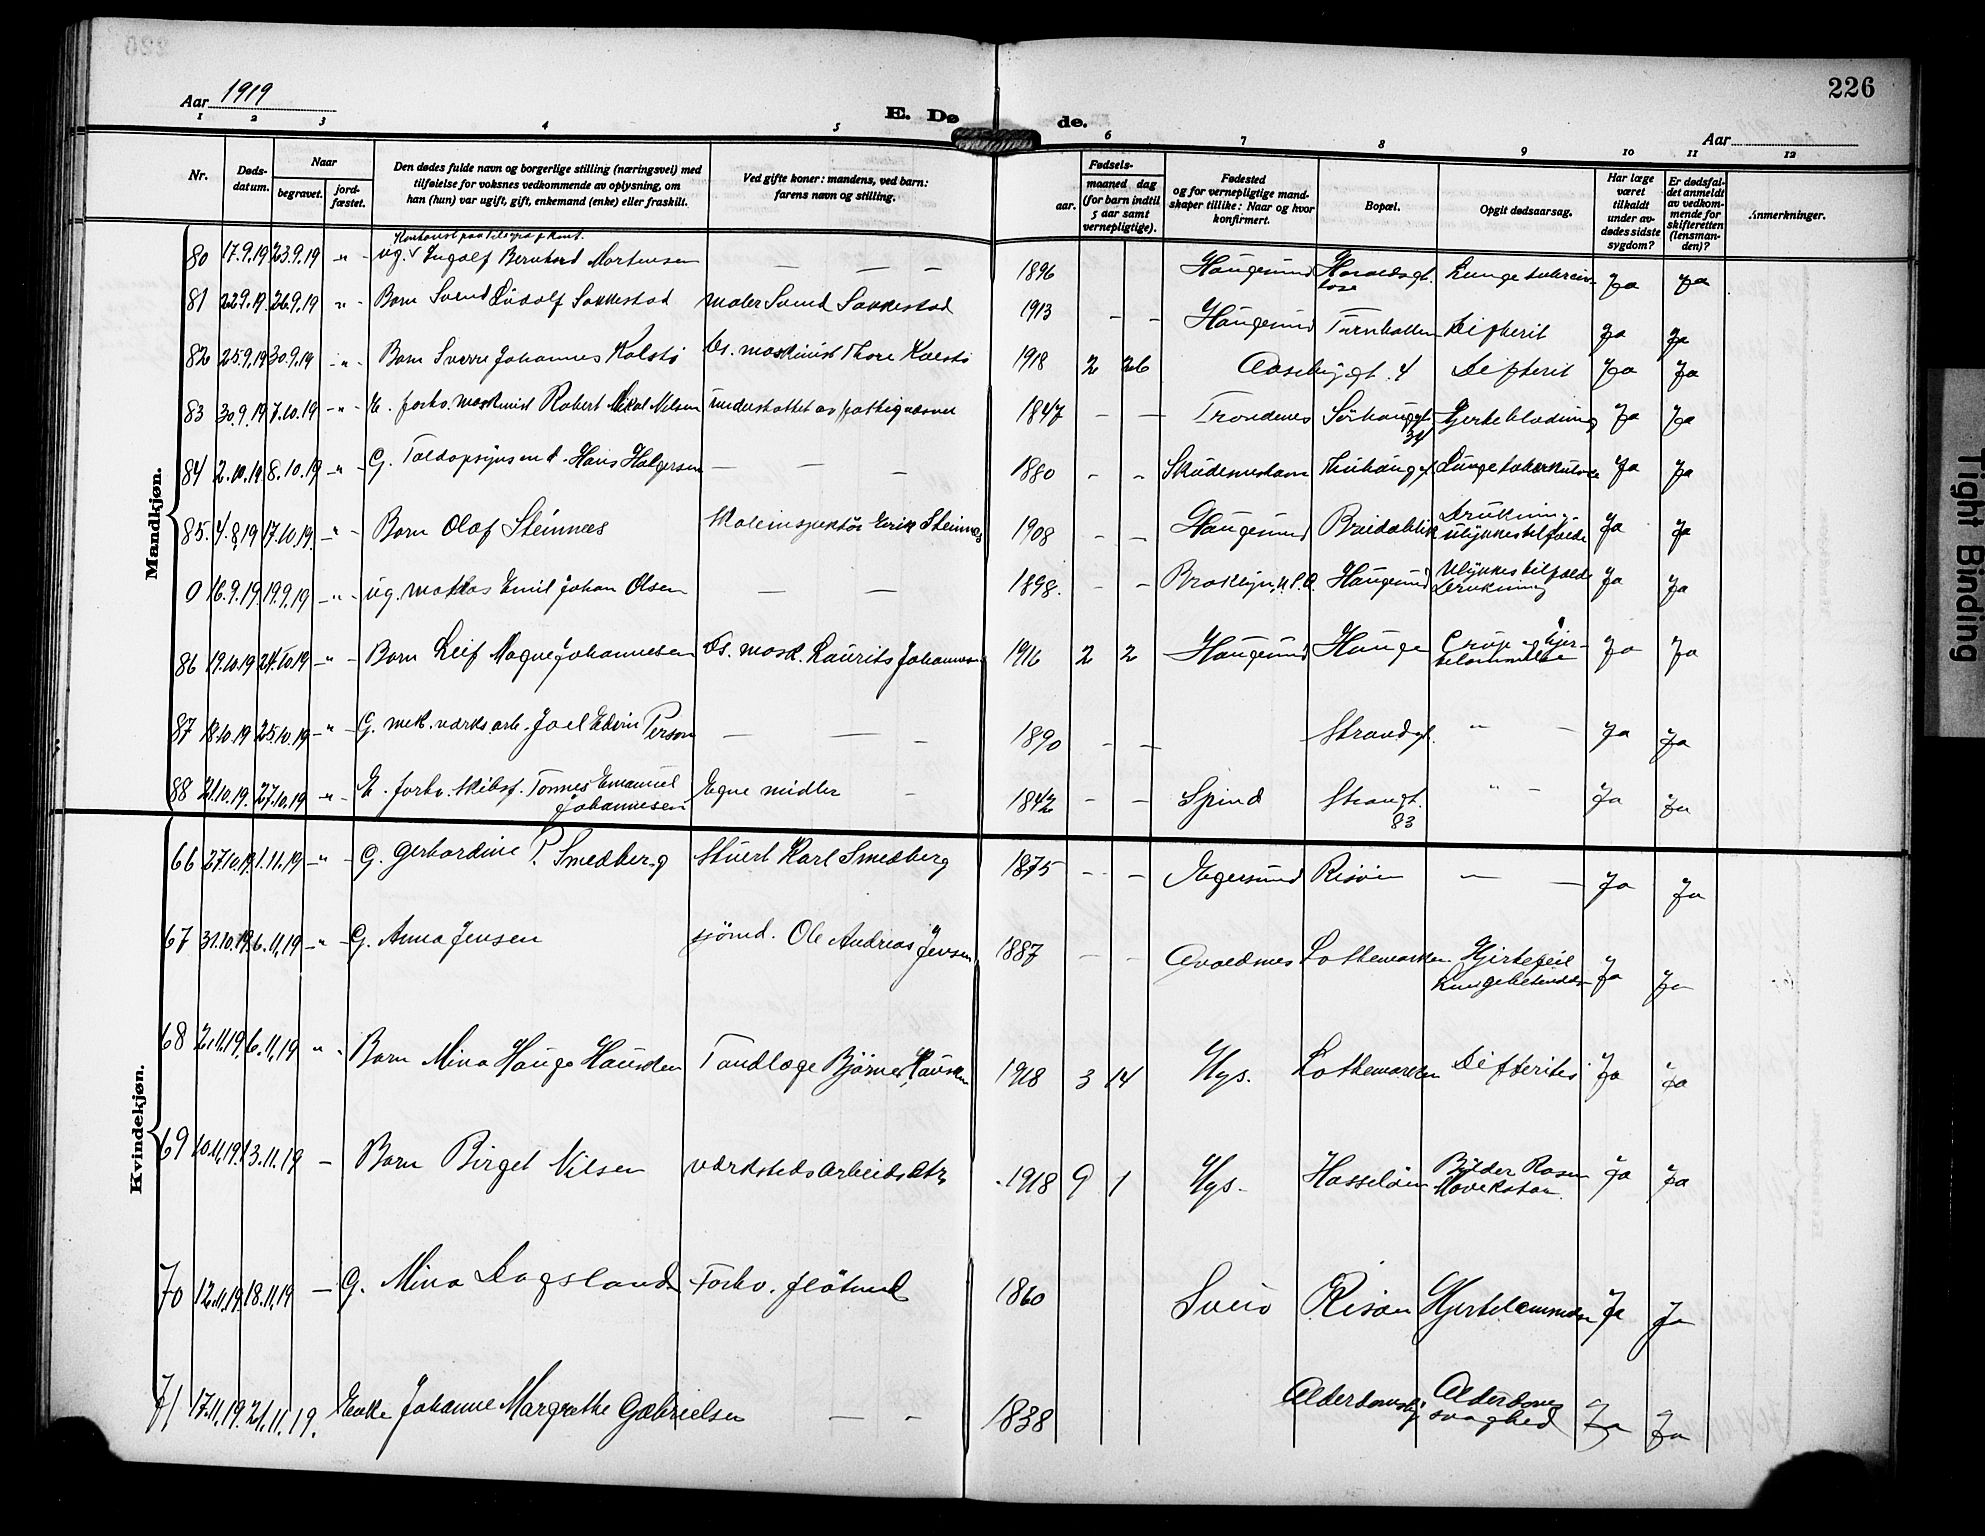 226
Aar 1919
E. Dø de.
Aar
1 2 3 4 5 6 7 8 9 10 11 12
Nr.
Døds-
datum.
Naar
begravet.
jord-
fæstet.
Den dødes fulde navn og borgerlige stilling (næringsvei) med
tilføielse for voksnes vedkommende av oplysning, om
han (hun) var ugift, gift, enkemand (enke) eller fraskilt.
Ved gifte koner: mandens, ved barn:
farens navn og stilling.
Fødsels-
aar.
maaned dag
(for barn indtil
5 aar samt
vernepligtige).
Fødested
og for vernepligtige mand-
skaper tillike: Naar og hvor
konfirmert.
Bopæl.
Opgit dødsaarsag.
Har læge
været
tilkaldt
under av-
dødes sidste
sygdom?
Er dødsfal-
det anmeldt
av vedkom-
mende for
skifteretten
(lensman-
den)?
Anmerkninger.
Mandkjøn.
80 17.9.19 23.9.19 -"- ug. Ingolf Bernhard Mortensen — — — 1896 Haugesund Ja Ja
81 22.9.19 26.9.19 " - Barn Svend Ludolf Sakkestad maler Svend Sakkestad 1913 - - Haugesund Turnhallen Difterit Ja Ja
82 25.9.19 30.9.19 -"- Barn Sverre Johannes Kolstø Ds. maskinist Thore Kolstø 1918 2 26 Aasebygt. 4 Difterit Ja Ja
83 30.9.19 7.10.19 -"- E. forhv. maskinist Robert Mikal Nilsen understøttet av fattigvæsnet 1847 - — Trondenes Sørhauggt. 34 Hjerteblødning Ja Ja
84 2.10.19 8.10.19 -"- G. Toldopsynsmd. Hans Halgersen — — - 1880 - - Skudesneshavn Lungetuberkulose Ja Ja
85. 4.8.19 17.10.19 -"- Barn Olaf Steinnæs Skoleinspektør Erik Steinnæs 1908 - - Haugesund Breidablik Drukning
ulykkestilfælde Ja Ja
0 16.9.19 19.9.19 -"- ug. matros Emil Johan Olsen — — 1898. - - Broklyn, U.S.A. Haugesund Ulykkestilfælde
Drukning Ja Ja
86 19.10.19 24.10.19 -"- Barn Leif Magne Johannesen Ds. mask. Laurits Johannesen 1916 2 2 Haugesund Hauge Crup og hjer-
telammelse Ja Ja
87 18.10.19 25.10.19 -"- G. mek. værks arb. Joel Edvin Person — — - 1890 - — Strandgt. " - Ja Ja
88 21.10.19. 27.10.19 -"- E. forhv. skibsf. Tønnes Emanuel
Johannesen Egne midler - 1842 - - Spind Strandgt.
83 " - Ja Ja
Kvindekjøn.
66 27.10.19 1.11.19 -"- G. Gerhardine P. Smedberg Stuert Karl Smedberg 1875 - - Egersund Risøen — — Ja Ja
67 31.10.19 6.11.19 -"- G. Anna Jensen sjömd. Ole Andreas Jensen 1887 - - Avaldsnes Lothemarken Hjertefeil
Lungebetændelse Ja Ja
68 2.11.19. 6.11.19 " - Barn Mina Hauge Hausken Tandlæge Bjarne Hausken 1918 3 14 Hgs. Lothemarken Difterites Ja Ja
69 10.11.19. 13.11.19 - Barn Birget Nilsen værkstedsarbeider 1918 9 1 Hgs. Hasseløen Ja Ja
70 12.11.19 18.11.19 — G. Mina Dagsland Forhv. fløtmd 1860 Sveio Risøen Hjertelammelse Ja Ja
71 17.11.19. 21.11.19. Enke Johanne Margrethe Gabrielsen — - 1838 Alderdomshj. Alderdoms
svaghed Ja Ja
Tight Binding